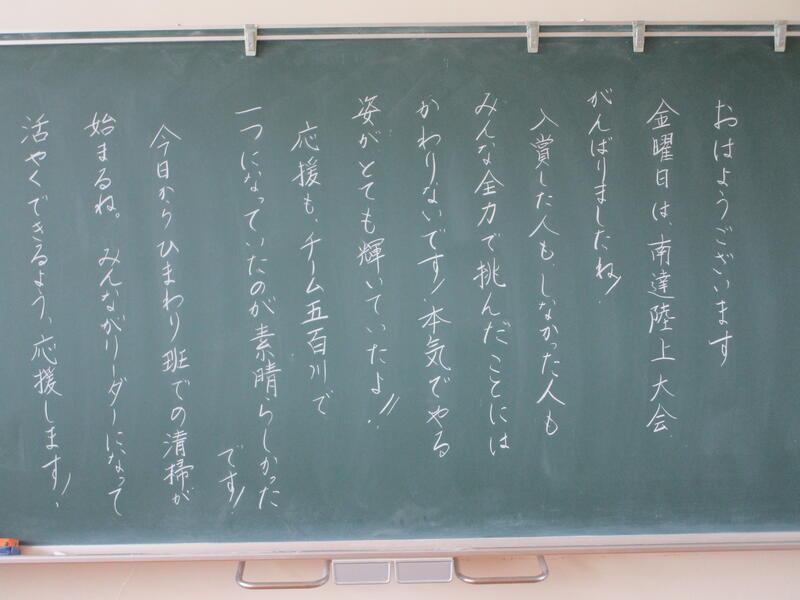 おはようございます
金曜日は、南達陸上大会
がんばりましたね!
入賞した人も、しなかった人も
みんな全力で挑んだことには
かわりないです!本気でやる
姿がとても輝いていたよ!!
応援も、チーム五百川で
一つになっていたのが素晴らしかった
です!
今日からひまわり班での清掃が
始まるね。みんながリーダーになって
活やくできるよう、応援します!